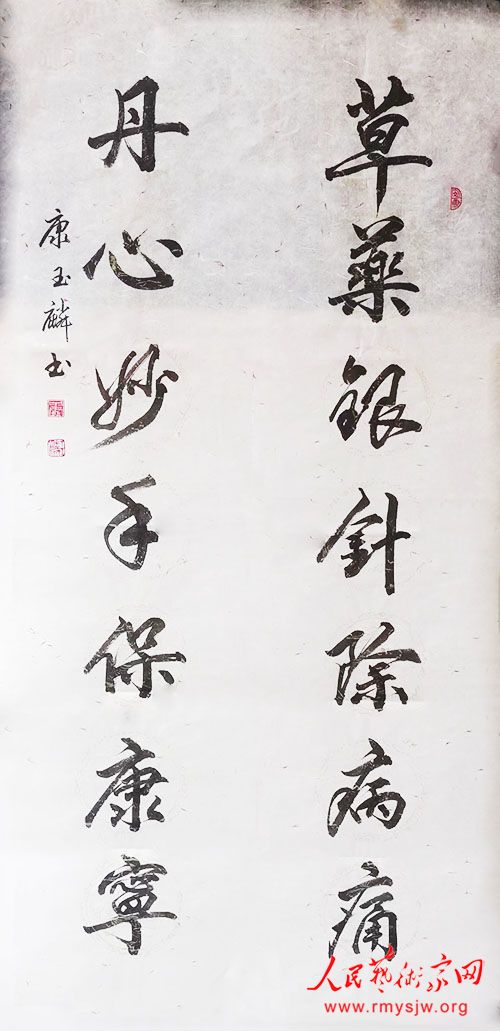 草藥銀針除病痛
丹心妙手保康寧
康玉麟书
人民藝術家网
www.rmysjw.org